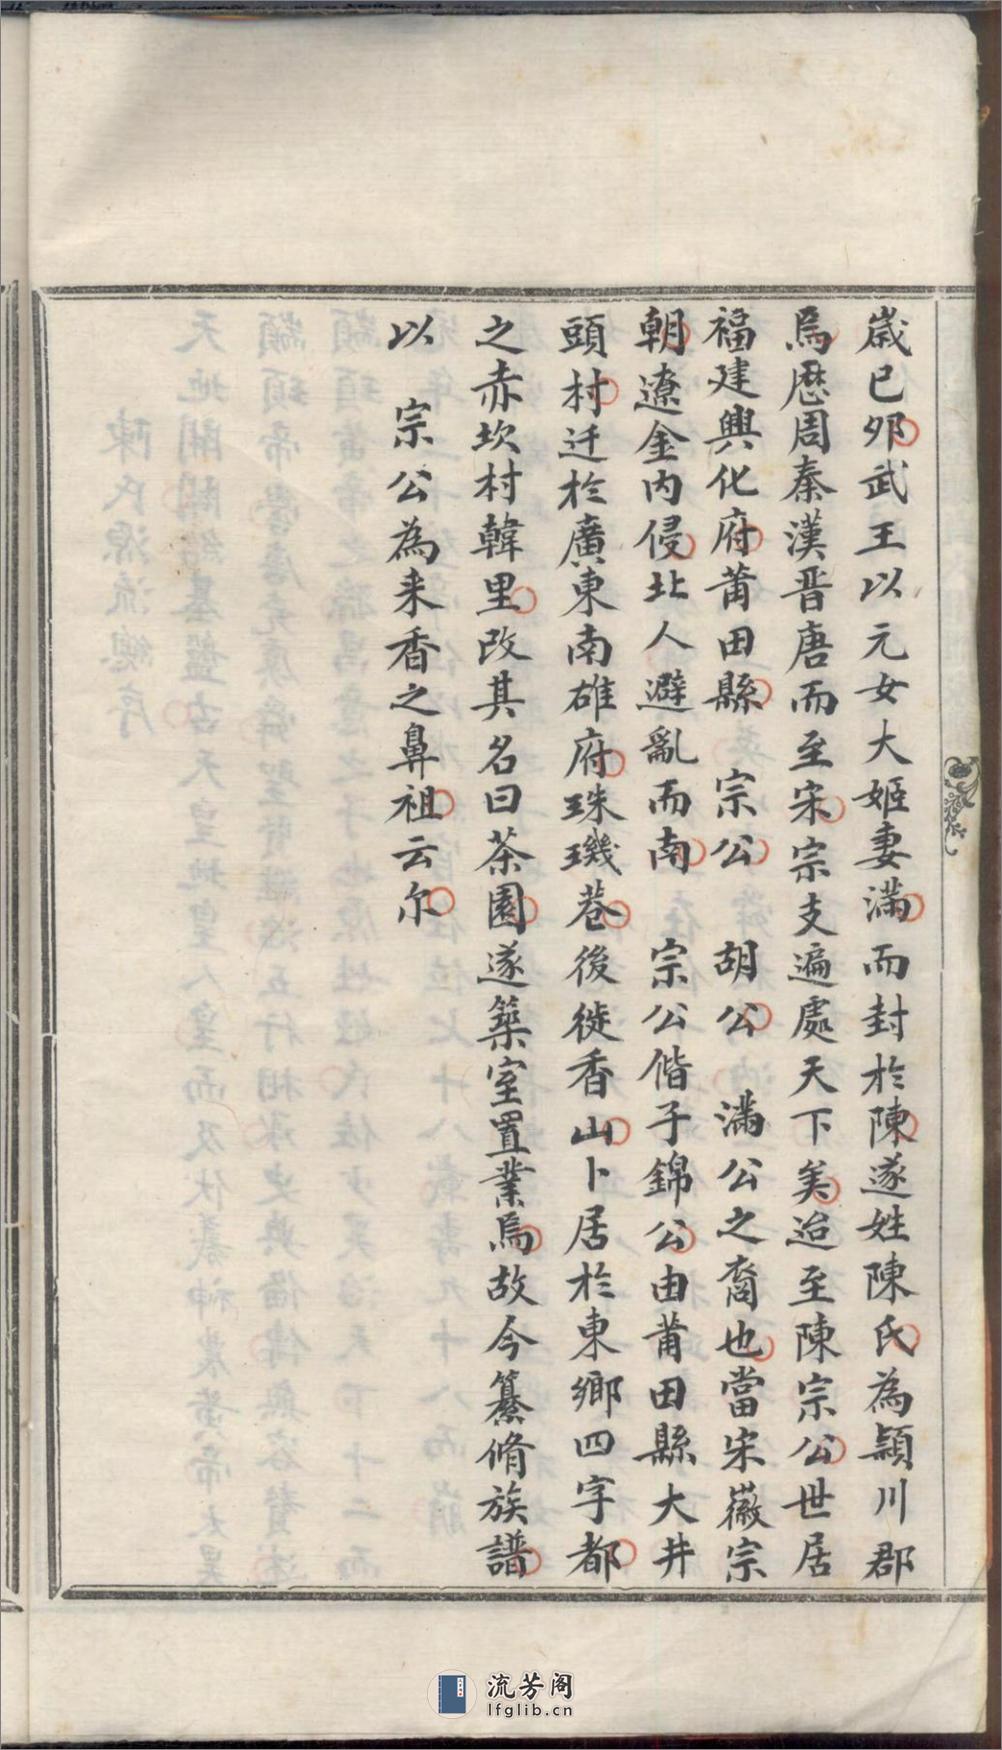 歲已夘武王以元女大姬妻滿而封於陳遂姓陳氏為頴川郡
焉歷周秦漢晋唐而至宋宗支遍處天下矣迨至陳宗公世居
福建興化府莆田縣　宗公　胡公　滿公之裔也當宋徽宗
朝遼金内侵北人避亂而南　宗公偕子錦公由莆田縣大井
頭村迁於廣東南雄府珠璣巷後徙香山卜居於東鄉四字都
之赤坎村韓里改其名曰茶園遂築室置業焉故今纂脩族譜
以　宗公為来香之鼻祖云尔
流芳阁
lfglib.cn